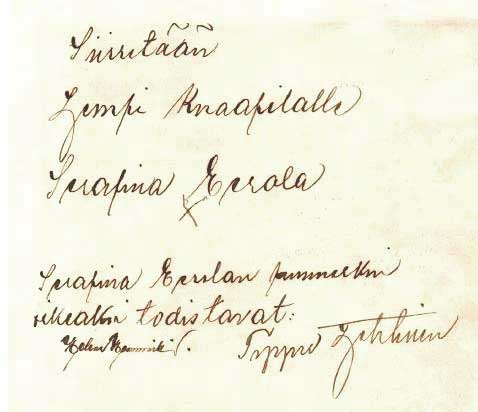 Siirretään
Lempi Knaapilalle
Serafina Eerola
X
Serafina Eerolan puumerkin
oikeaksi todistavat: